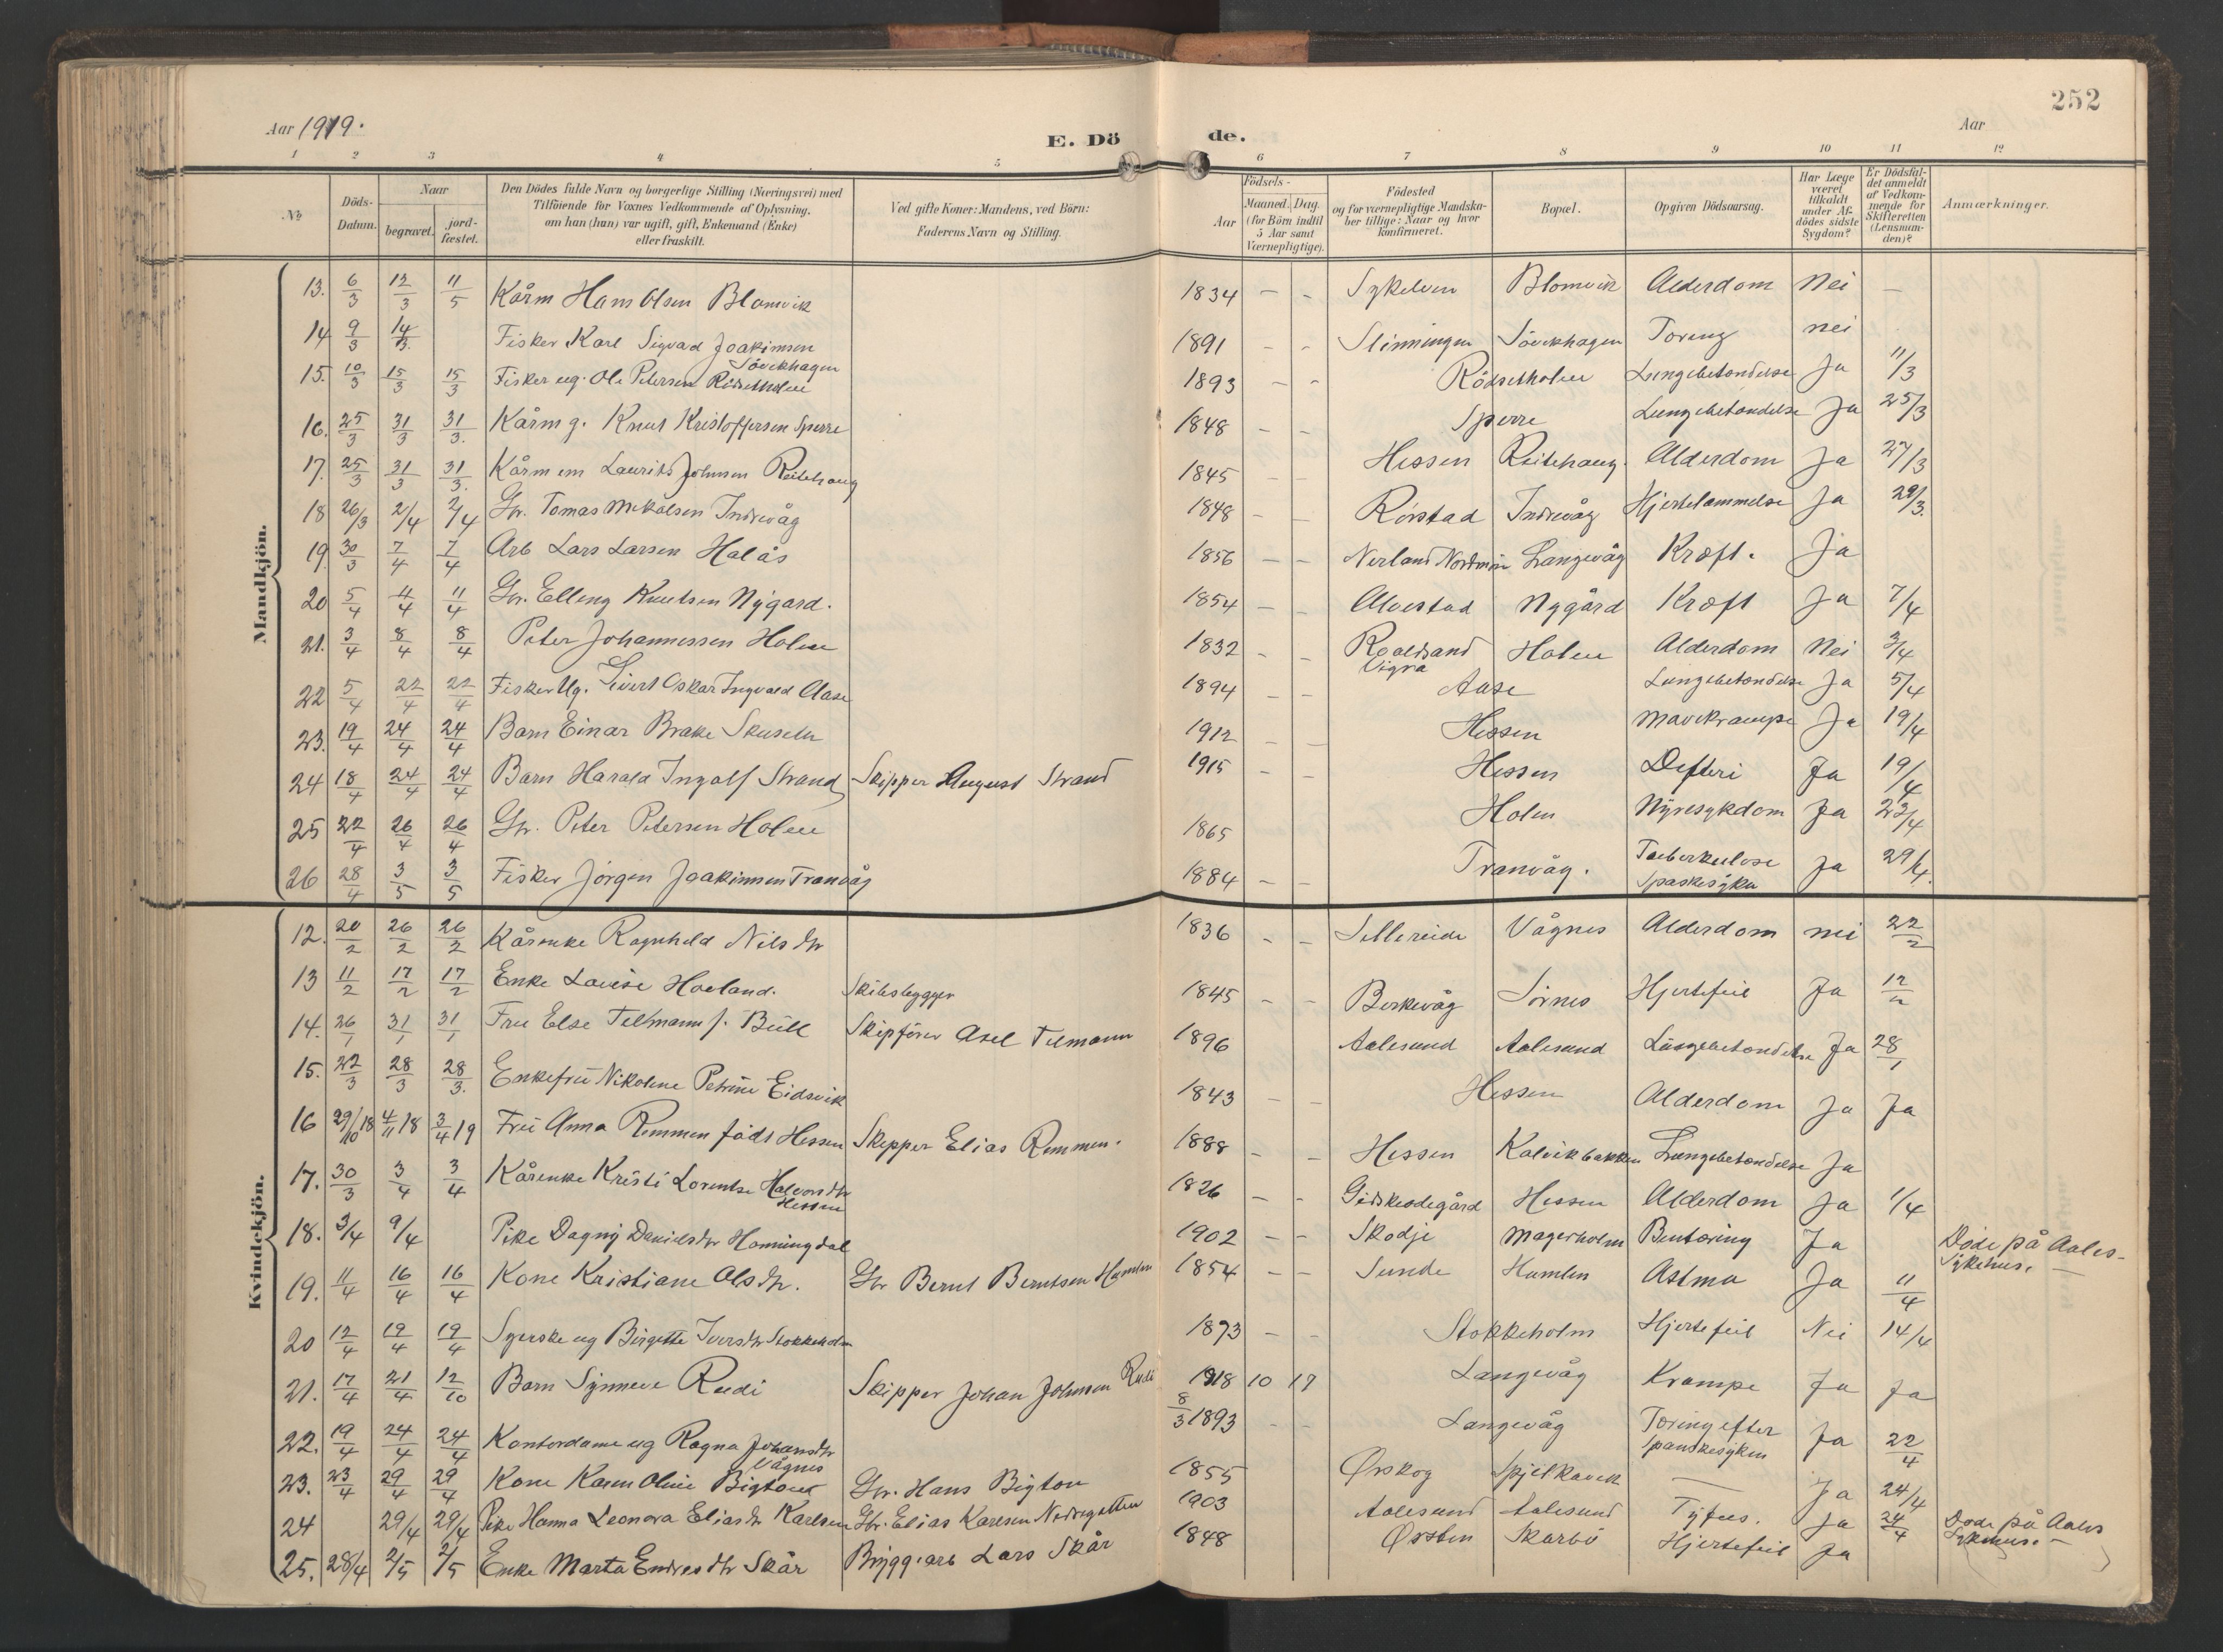 252
Aar 1919.
E. Döde.
Aar
1 2 3 4 5 6 7 8 9 10 11 12
№
Döds-Datum.
Naar
begravet.
jord-fæstet.
Den Dödes fulde Navn og borgerlige Stilling (Næringsvei) med
Tilföiende for Voxnes Vedkommende af Oplysning,
om han (hun) var ugift, gift, Enkemand (Enke)
eller fraskilt.
Ved gifte Koner: Mandens, ved Börn:
Faderens Navn og Stilling.
Födsels-
Aar
Maaned. Dag.
(for Börn indtil
5 Aar samt
Værnepligtige).
Födested
og for værnepligtige Mandska-
ber tillige: Naar og hvor
konfirmeret.
Bopæl.
Opgiven Dödsaarsag.
Har Læge
været
tilkaldt
under Af-
dödes sidste
Sygdom?
Er Dödsfal-
det anmeldt
af Vedkom-
mende for
Skifteretten
(Lensman-
den)?
Anmærkninger.
Mandkjön.
13. 6/3 12/3 11/5 Kårm Hans Olsen Blomvik 1834 - - Sykelven Blomvik Alderdom Nei -
14 9/3 14/3 Fisker Karl Sigvad Joakimsen Sövikhagen 1891 - - Slinningen Sövikhagen Toreng nei
15. 10/3 15/3 15/3 Fisker ug. Ole Petersen Rödsetholen 1893 - - Rödsetholen Lungebetendelse Ja 11/3
16. 25/3 31/3 31/3. Kårm g. Knut Kristoffersen Sperre 1848 - - Sperre Lungebetendelse Ja 25/3
17. 25/3 31/3 31/3. Kårm em Laurits Johnsen Reitehaug 1845 - - Hessen Reitehaug. Alderdom Ja 27/3
18 26/3 2/4 2/4 Gbr. Tomas Mikalsen Indrevåg 1848 - - Rörstad Indrevåg Hjertelammelse Ja 29/3.
19. 30/3 7/4 7/4 Arb Lars Larsen Halås 1856 - - Nerland Nordmör Langevåg Kræft. Ja
20 5/4 11/4 11/4 Gbr. Elling Knutsen Nygard. 1854 - - Alvestad Nygård Kræft Ja 7/4
21. 3/4 8/4 8/4 Peter Johannessen Holen 1832 - - Roaldsand Vigra Holen Alderdom Nei 3/4
22 5/4 22/4 22/4 Fisker Ug. Sivert Oskar Ingvald Aase 1894 - - Aase Lungebetendelse Ja 5/4
23. 19/4 24/4 24/4 Barn Einar Brake Skuseth 1912 - - Hessen Mavekrampe Ja 19/4
24 18/4 24/4 24/4 Barn Harald Ingolf Strand Skipper August Strand 1915 - - Hessen Defteri Ja 19/4
25 22/4 26/4 26/4 Gbr. Peter Petersen Holen 1865 Holen Nyresykdom Ja 23/4
26 28/4 3/5 3/5 Fisker Jörgen Joakimsen Tranvåg 1884 - - Tranvåg. Tuberkulose Spaskesyka Ja 29/4.
Kvindekjön.
12. 20/2 26/2 26/2 Kårenke Ragnhild Nilsdtr 1836 - - Sellereide Vågnes Alderdom nei 22/2
13 11/2 17/2 17/2 Enke Lovise Hovland. Skibsbygger 1845 - - Berkevåg Sörnes Hjertefeil Ja 12/2
14. 26/1 31/1 31/1 Frue Else Tilmann f. Büll Skipförer Axel Tilmann 1896 Aalesund Aalesund Lungebetendelse Ja 28/1
15. 22/3 28/3 28/3. Enkefru Nikoline Petrine Eidsvik 1843 - - Hessen Alderdom Ja Ja
16 29/10 18 4/11 18 3/4 19 Fru Anna Remmen födt Hessen Skipper Elias Remmen. 1888 - - Hessen Kalvikbakken Lungebetendelse Ja
17. 30/3 3/4 3/4 Kårenke Kristi Lorentse Halvorsdtr Hessen 1826 - - Gidskeodegård Hessen Alderdom Ja 1/4
18. 3/4 9/4 Pike Dagny Davidsdtr Honningdal 1902 - - Skodje Magerholm Bentæring Ja Döde på Aales-sykehus.
19. 11/4 16/4 16/4 Kone Kristiane Olsdtr. Gbr Bernt Berntsen Humlen 1854 - - Sunde Humlen Astma Ja 11/4
20 12/4 19/4 19/4 Syerske ug Birgitte Iversdtr Stokkeholm 1873 - - Stokkeholm Hjertefeil Nei 14/4
21. 17/4 21/4 12/10 Barn Synneve Rudi Skipper Johan Johnsen Rudi 1918 10 17 Langevåg Krampe Ja Ja
22. 19/4 24/4 24/4 Kontordame ug Ragna Johansdtr Vågnes 8/3 1893 - - Langevåg Toring efter spanskesyken Ja 22/4
23. 23/4 29/4 29/4 Kone Karen Oline Bigton Gbr. Hans Bigton 1855 Ørskog Spjelkavik - Ja 24/4
24 29/4 29/4 Pike Hanna Leonora Eliasdtr Karlsen Gbr. Elias Karlsen Nedregotten 1903 Aalesund Aalesund Tyfus. Ja 24/4 Döde på Aales Sykehus.-
25. 28/4 2/5 2/5 Enke Marta Endresdtr Skår Brygg.arb Lars Skår 1848 Ørsten Skarbö Hjertefeil Ja